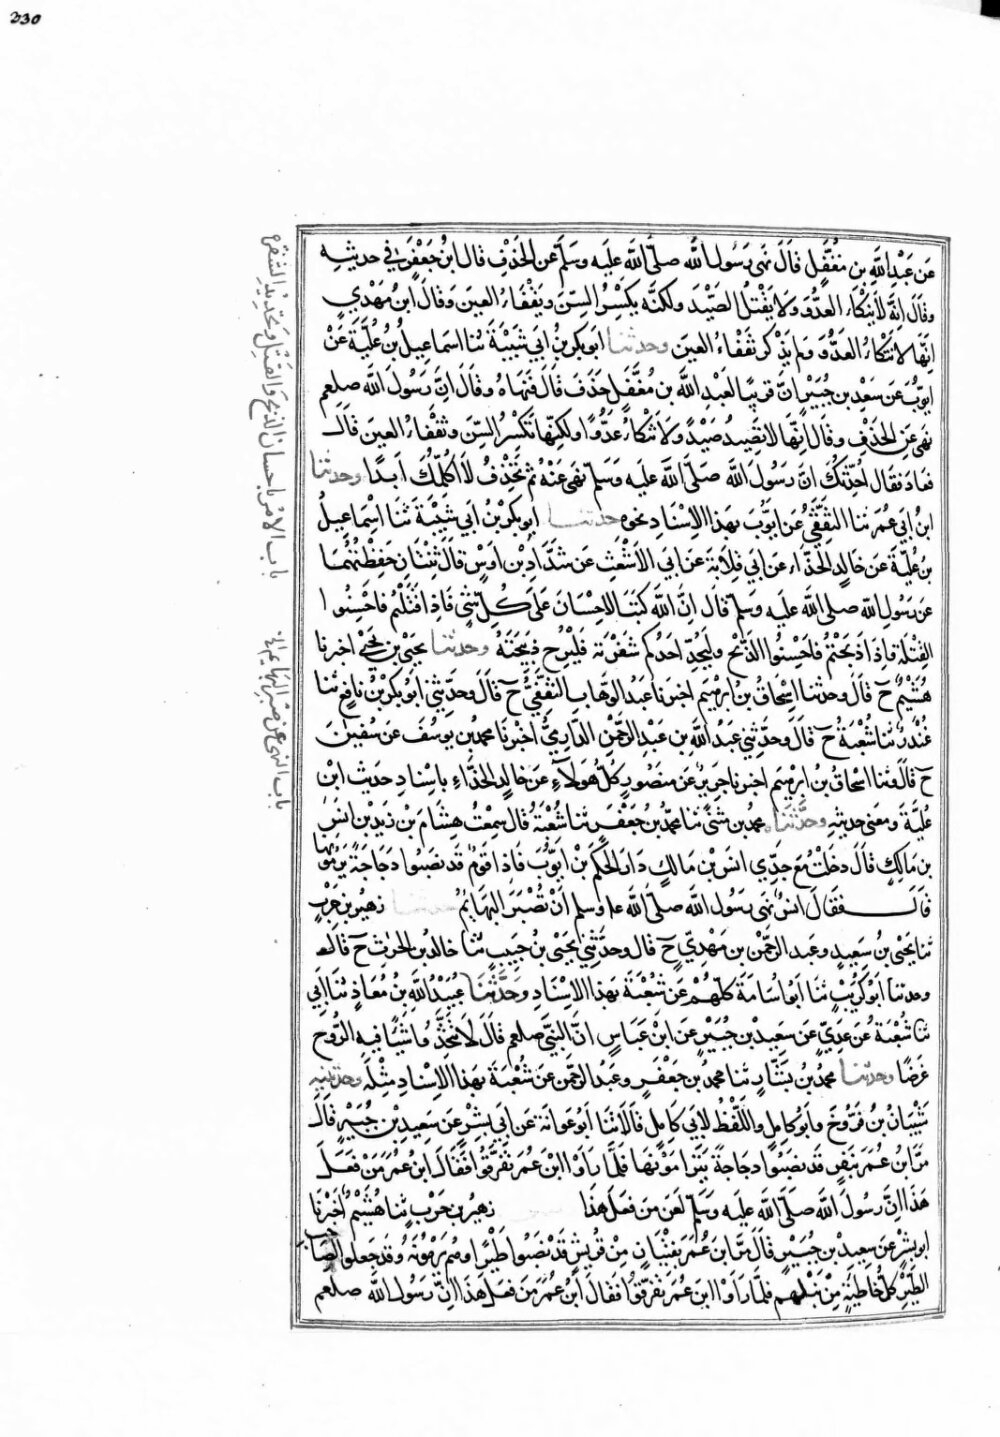 230
عَن عَبْدِاللَّهِ بن مُغَفَّلٍ قَالَ نَهَى رَسُولُ اللَّه صلّى اللَّه عليه وسَلَّم عَنِ الخَذْفِ قال ابنُ جَعْفَرٍ في حديثِه
وقَالَ اِنَّهُ لاَ يَنْكَاءُ العدُوَّ وَلاَ يَقْتلُ الصَّيْدَ ولكنَّه يكسْرُ السِنَّ ويَفْقَاءُ العينَ وَقَالَ ابنُ مَهْديٍ
اِنّهَا لا تَنْكَاءُ العَدُوَّ وَلم يَذْكر تَفْقَاءُ العينَ وحدثنا ابوبكر بنُ ابي شَيْبَةَ ثنا اسماعيلُ بنُ عُلَيَّةَ عَنْ
ايّوبَ عَن سَعِيْد بن جُبَيْرٍ انَّ قَريبًا لعَبْدِ اللَّه بن مُغَفَّلٍ خَذَفَ قَالَ فَنَهَاهُ وقَالَ انَّ رَسُولَ اللَّه صلعم
نَهَى عَنِ الخَذْفِ وقَالَ اِنَّهَا لاَ تَصِيْدُ صَيْدًا وَلاَ تنْكَاءُ عَدُوًّا ولكنّهَا تَكْسِرُ السِّنَّ وتَفْقَاءُ العينَ قَالَ
فعَادَ فَقَال اُحَدِّثُكَ انَّ رَسُولَ اللَّه صَلّى اللَّه عليه وَسَلّم نهَى عَنْهُ ثمَّ تَخْذِفُ لاَ اُكَلِّمُكَ ابَدًا وحدثنا
ابنُ ابي عُمَرَ ثنا الثقَفِيُّ عَن ايّوُبَ بهَذا الاِسْنَادِ نحوه حدثنا ابوبكر بْنُ ابي شَيْبَةَ ثَنا اسْمَاعِيلُ
بنُ عُلَيَّةَ عَن خالدٍ الحَذَّاءِ عَن ابي قِلاَبَةَ عَن ابي الاَشْعَثِ عَن شدَّادِ بْن اَوْسٍ قالَ ثِنْتَانِ حَفِظْتُهُمَا
عَن رَسُولِ اللَّه صلى اللَّه عليه وسلّم قَالَ اِنَّ اللَّهَ كَتَبَ الاِحْسَانَ عَلَى كلِّ شَئٍ فَاِذا قَتَلْتُم فاحْسِنُوا
القِتْلَةَ فاِذَا ذَبحْتُم فاحْسِنُوا الذَبْحَ وليُحِدَّ احَدُكم شَفْرَتَه فَليُرِحْ ذَبِيْحَتَهُ وحدثنا يحيَى بن يَحْيَى اخبرنا
هُشَيْمٌ حَ قَالَ وحدثنا اِسْحَاقُ بنُ ابرهيم اخبرنا عَبدُ الوهّابِ الثقَفِيُّ حَ قَالَ وحدّثني ابوبكر بْنُ نافعٍ ثنا
غُنْدَرٌ ثنا شُعْبَةُ حَ قَالَ وحَدّثني عَبدُ اللَّه بن عَبْدِ الرحمن الدَارِمِيُّ اخبرنا محمد بن يوسُفَ عَن سُفيانَ
حَ قَالَ وثنا اسحاقُ بنُ ابرهيم اخبرنا جَرِيرٌ عَن منصُورٍ كلُّ هَولاَءِ عَن خالدٍ الحذَّاءِ باسنادِ حَديثِ ابْن
عُليَّةَ ومَعنَى حديثِهِ وحَدَّثَنَا محمد بن مثنَّى ثنا محمّد بن جَعْفَرٍ ثنا شُعْبَةُ قال سمِعْتُ هِشَامَ بْن زَيدِ بْن انسِ
بنِ مَالِكٍ قَالَ دخَلْتُ مَعَ جَدِّي انَسِ بْن مَالِكٍ دَارَ الحَكَم بْن ايُّوبَ فاِذا قومٌ قد نصَبُوا دَجَاجَةً يَرْمُونها
قَالَ فقَالَ انسٌ نَهَى رَسُول اللَّه صلى اللَّه عليه وسلم اَنْ تُصْبَرَ البَهَايمُ زهَيْر بن حَرْبٍ
ثنا يَحْيَى بنُ سَعِيدٍ وعَبد الرحمن بن مَهْديٍّ حَ قال وحدَّثني يحيَى بنُ حَبيبٍ ثنا خالدُ بن الحَرثِ حَ قالَ
وحدثنا ابُو كُرَيْبٍ ثنا ابُو اُسَامَةَ كلّهُمْ عَن شُعْبَةَ بهَذا الاِسْنَادِ وحدَّثَنَا عبَيْدُ اللَّهِ بنُ مُعَاذٍ ثنا ابي
ثنا شعبَةُ عَن عَديٍّ عَن سَعيدِ بْن جُبَيْرٍ عَن ابْن عَبَاسٍ انَّ النَبيَّ صلعم قَالَ لاَ تتَّخِذُوا شَيْئًا فيه الرُوح
غَرَضًا وحدّثنا محمد بْن بَشّارٍ ثنا محمد بن جعفرٍ وعبد الرحمن عَن شُعْبَةَ بهَذا الاِسْنَاد مِثلَه وحدثنيه
شَيْبَانُ بْنُ فَرُّوخَ وابُو كامِلٍ واللّفْظُ لاَبي كَامِلٍ قَالاَ ثَنا ابُو عَوانَةَ عَن ابي بِشْرٍ عَن سَعِيدِ بْن جُبَيْرٍ قَالَ
مَرَّ ابن عُمَرَ بنَفَرٍ قد نَصَبُوا دَجَاجَةً يَتَرَامَوْنَهَا فلَمَّا رَاَوْا ابْنَ عُمَرَ تَفَرَّقوا فَقَالَ ابنُ عُمَرَ مَنْ فَعَلَ
هَذا اِنَّ رَسُولَ اللَّه صَلّى اللَّه عليه وَسَلّم لَعَن مَن فعَلَ هَذَا زهَير بن حَرْبٍ ثنا هُشَيْمٌ اخبرْنَا
ابو بِشرٍ عَن سعِيدِ بن جُبَيْرٍ قَالَ مَرَّ ابن عُمَرَ بفِتْيَانٍ مِنْ قُرَيْشٍ قَدْ نصَبُوا طَيْرًا وهُم يَرمُونَهُ وقد جعلُوا لِصَاحبِ
الطَيْرِ كلَّ خَاطِئَةٍ مِنْ نَبْلِهِم فلمَّا رَاَوْا ابنَ عُمَرَ تَفرَّقوا فقالَ ابنُ عُمَرَ مَن فعَلَ هَذا اِنَّ رَسُولَ اللَّه صلعم
باب الامر باحسان الذبح والقتل وتحديد الشفرة
باب النهى عن صبر البهايم